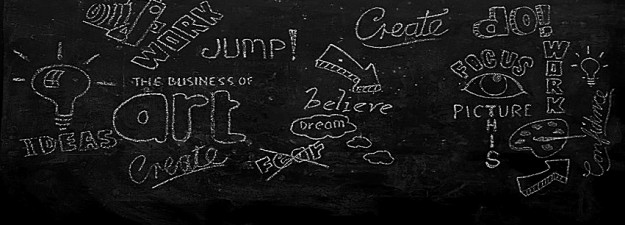 Only if
WORK
JUMP!
Create
do!
WORK
FOCUS
THE BUSINESS OF
art
believe
Dream
PICTURE
THIS
IDEAS
Create
FEAR
Confidence